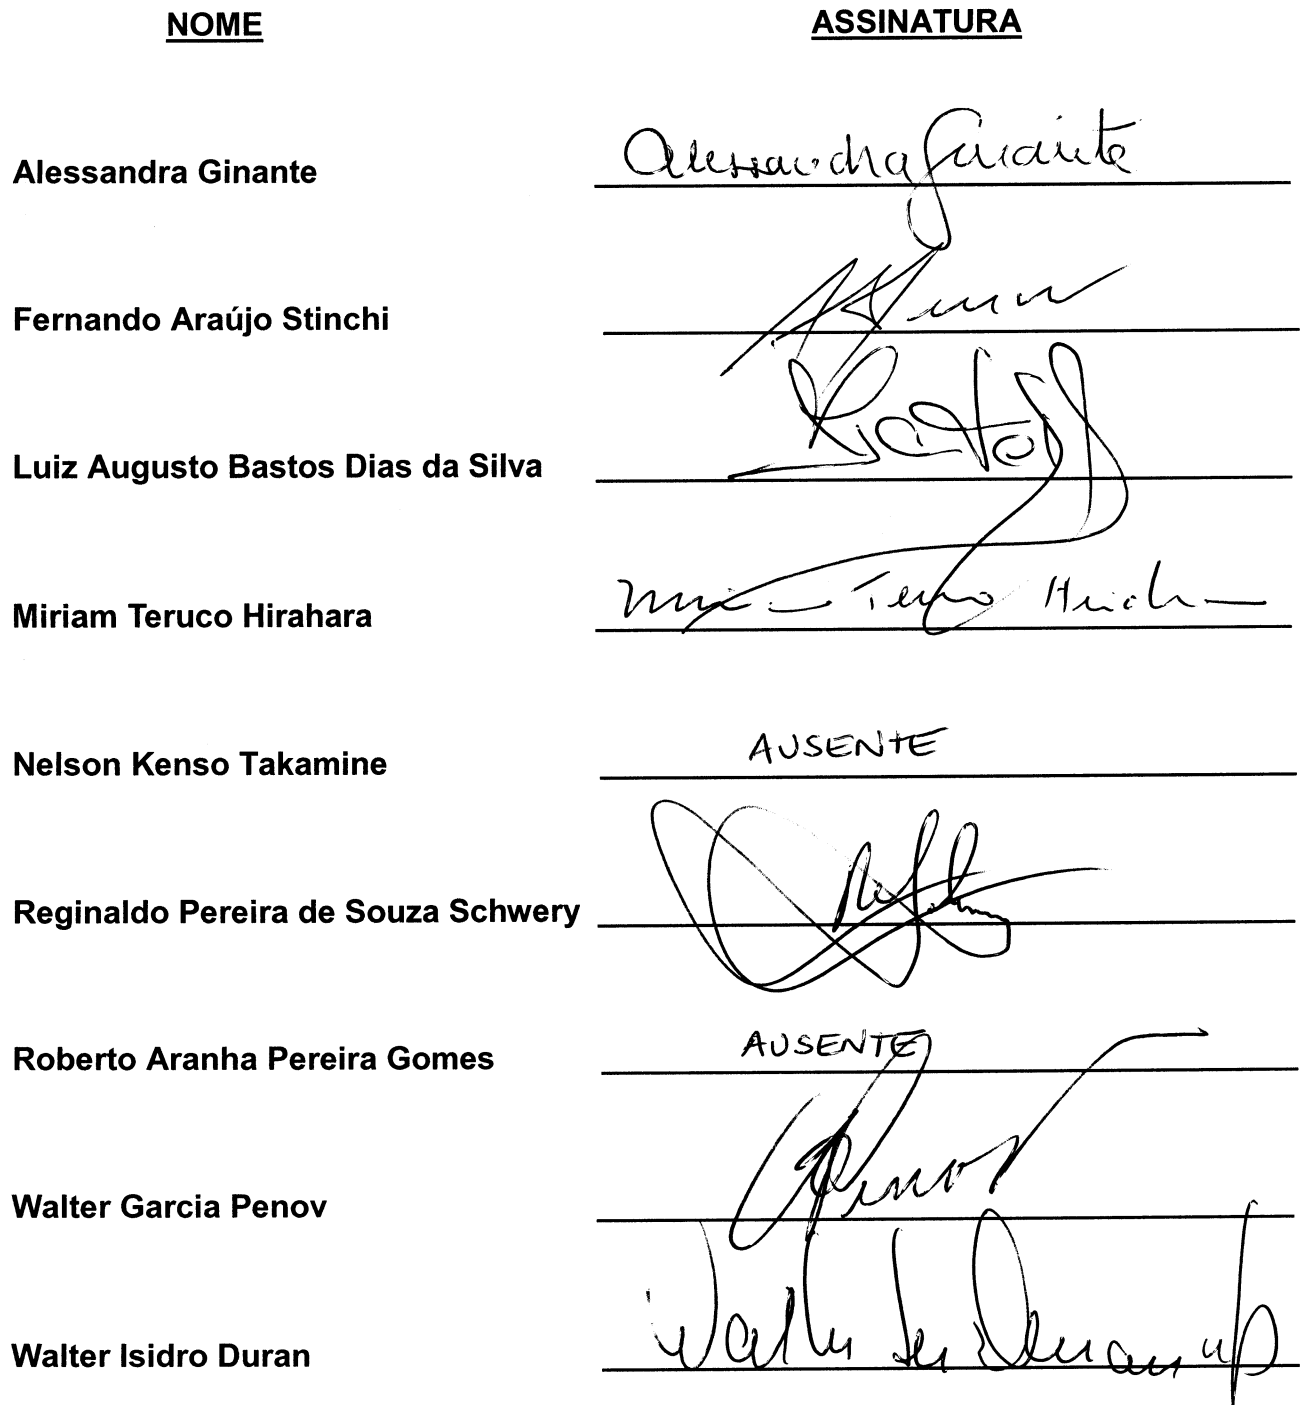 NOME ASSINATURA
Alessandra Ginante Alessandra Ginante
Fernando Araújo Stinchi
Luiz Augusto Bastos Dias da Silva
Miriam Teruco Hirahara
Nelson Kenso Takamine AUSENTE
Reginaldo Pereira de Souza Schwery
Roberto Aranha Pereira Gomes AUSENTE
Walter Garcia Penov Penov
Walter Isidro Duran Walter